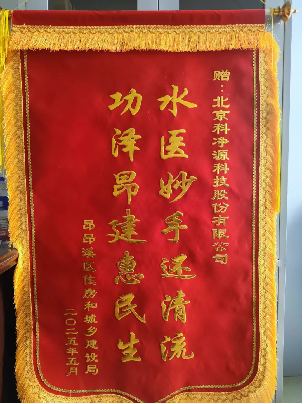 赠：北京科净源科技股份有限公司
水医妙手还清流
功泽昂建惠民生
昂昂溪区住房和城乡建设局
二〇二五年五月